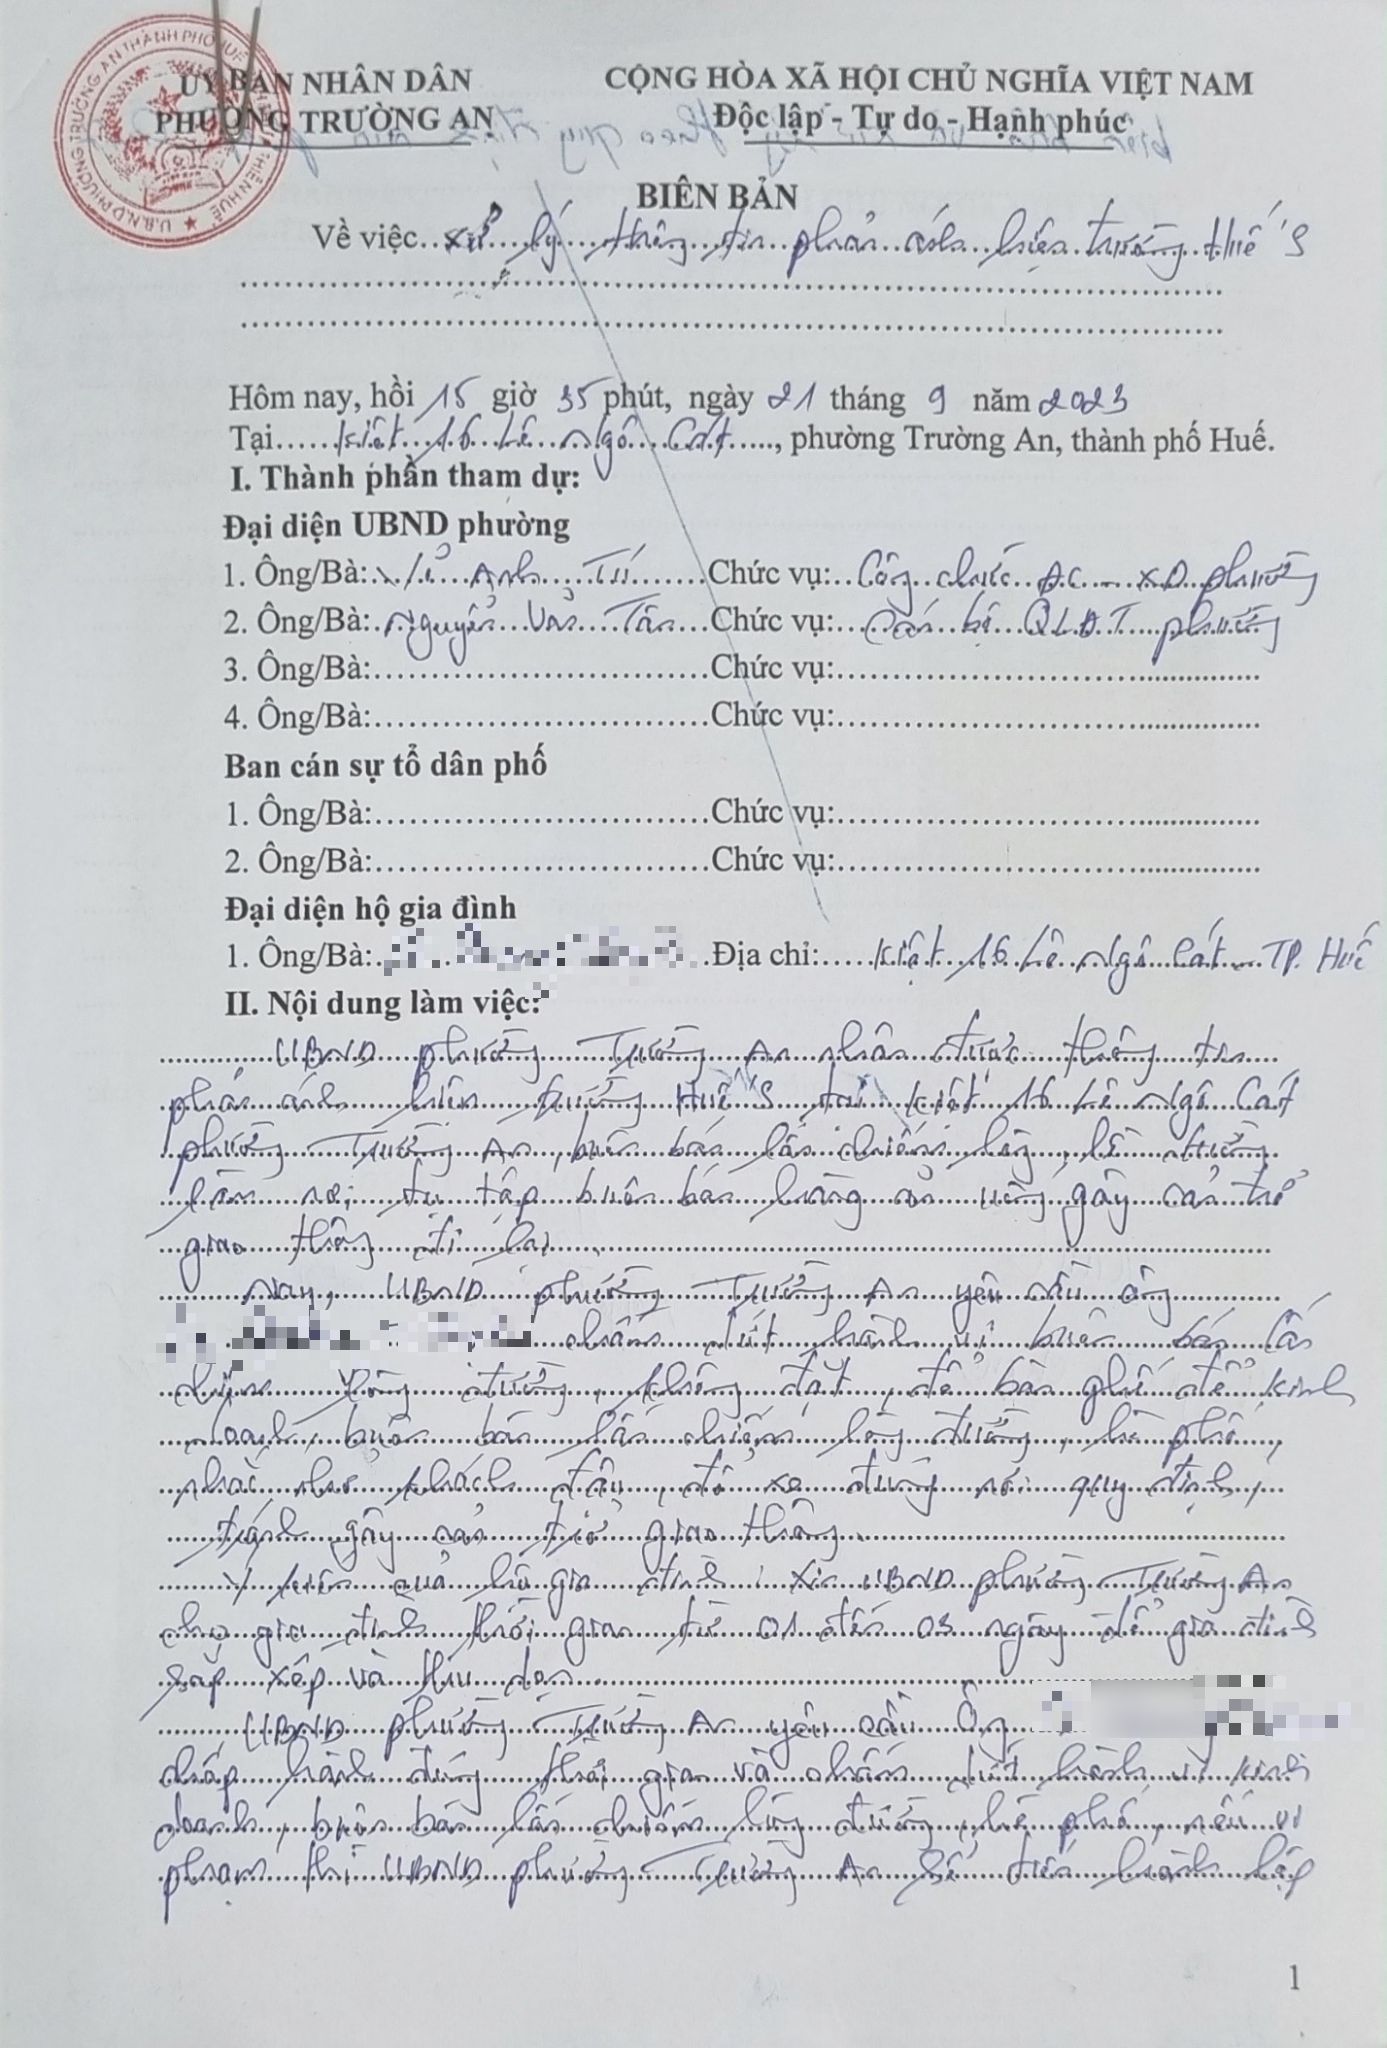 ỦY BAN NHÂN DÂN
PHƯỜNG TRƯỜNG AN
CỘNG HÒA XÃ HỘI CHỦ NGHĨA VIỆT NAM
Độc lập - Tự do - Hạnh phúc
BIÊN BẢN
Về việc..xử lý thông tin phản ánh hiện trường Huế S
Hôm nay, hồi 15 giờ 35 phút, ngày 21 tháng 9 năm 2023
Tại......Kiệt 16 Lê Ngô Cát....., phường Trường An, thành phố Huế.
I. Thành phần tham dự:
Đại diện UBND phường
1. Ông/Bà: Anh Tú Chức vụ: Công chức ĐC - XD phường
2. Ông/Bà: Nguyễn Văn Tân Chức vụ: Cán bộ QLĐT phường
3. Ông/Bà:.................................Chức vụ:.................................
4. Ông/Bà:.................................Chức vụ:.................................
Ban cán sự tổ dân phố
1. Ông/Bà:.................................Chức vụ:.................................
2. Ông/Bà:.................................Chức vụ:.................................
Đại diện hộ gia đình
1. Ông/Bà: Địa chỉ: Kiệt 16 Lê Ngô Cát - TP. Huế
II. Nội dung làm việc:
UBND phường Trường An nhận được thông tin
phản ánh hiện trường Huế S tại Kiệt 16 Lê Ngô Cát
phường Trường An, buôn bán lấn chiếm lòng, lề đường
làm nơi tụ tập buôn bán hàng ăn uống gây cản trở
giao thông đi lại
Nay, UBND phường Trường An yêu cầu ông
chấm dứt hành vi buôn bán lấn
chiếm lòng đường, không đặt, để bàn ghế để kinh
doanh, buôn bán lấn chiếm lòng đường, hè phố,
nhắc nhở khách đậu, đỗ xe đúng nơi quy định,
tránh gây cản trở giao thông.
Ý kiến của hộ gia đình: Xin UBND phường Trường An
cho gia đình thời gian từ 01 đến 03 ngày để gia đình
sắp xếp và thu dọn
UBND phường Trường An yêu cầu Ông
chấp hành đúng thời gian và chấm dứt hành vi kinh
doanh, buôn bán lấn chiếm lòng đường, hè phố, nếu vi
phạm thì UBND phường Trường An sẽ tiến hành lập
1